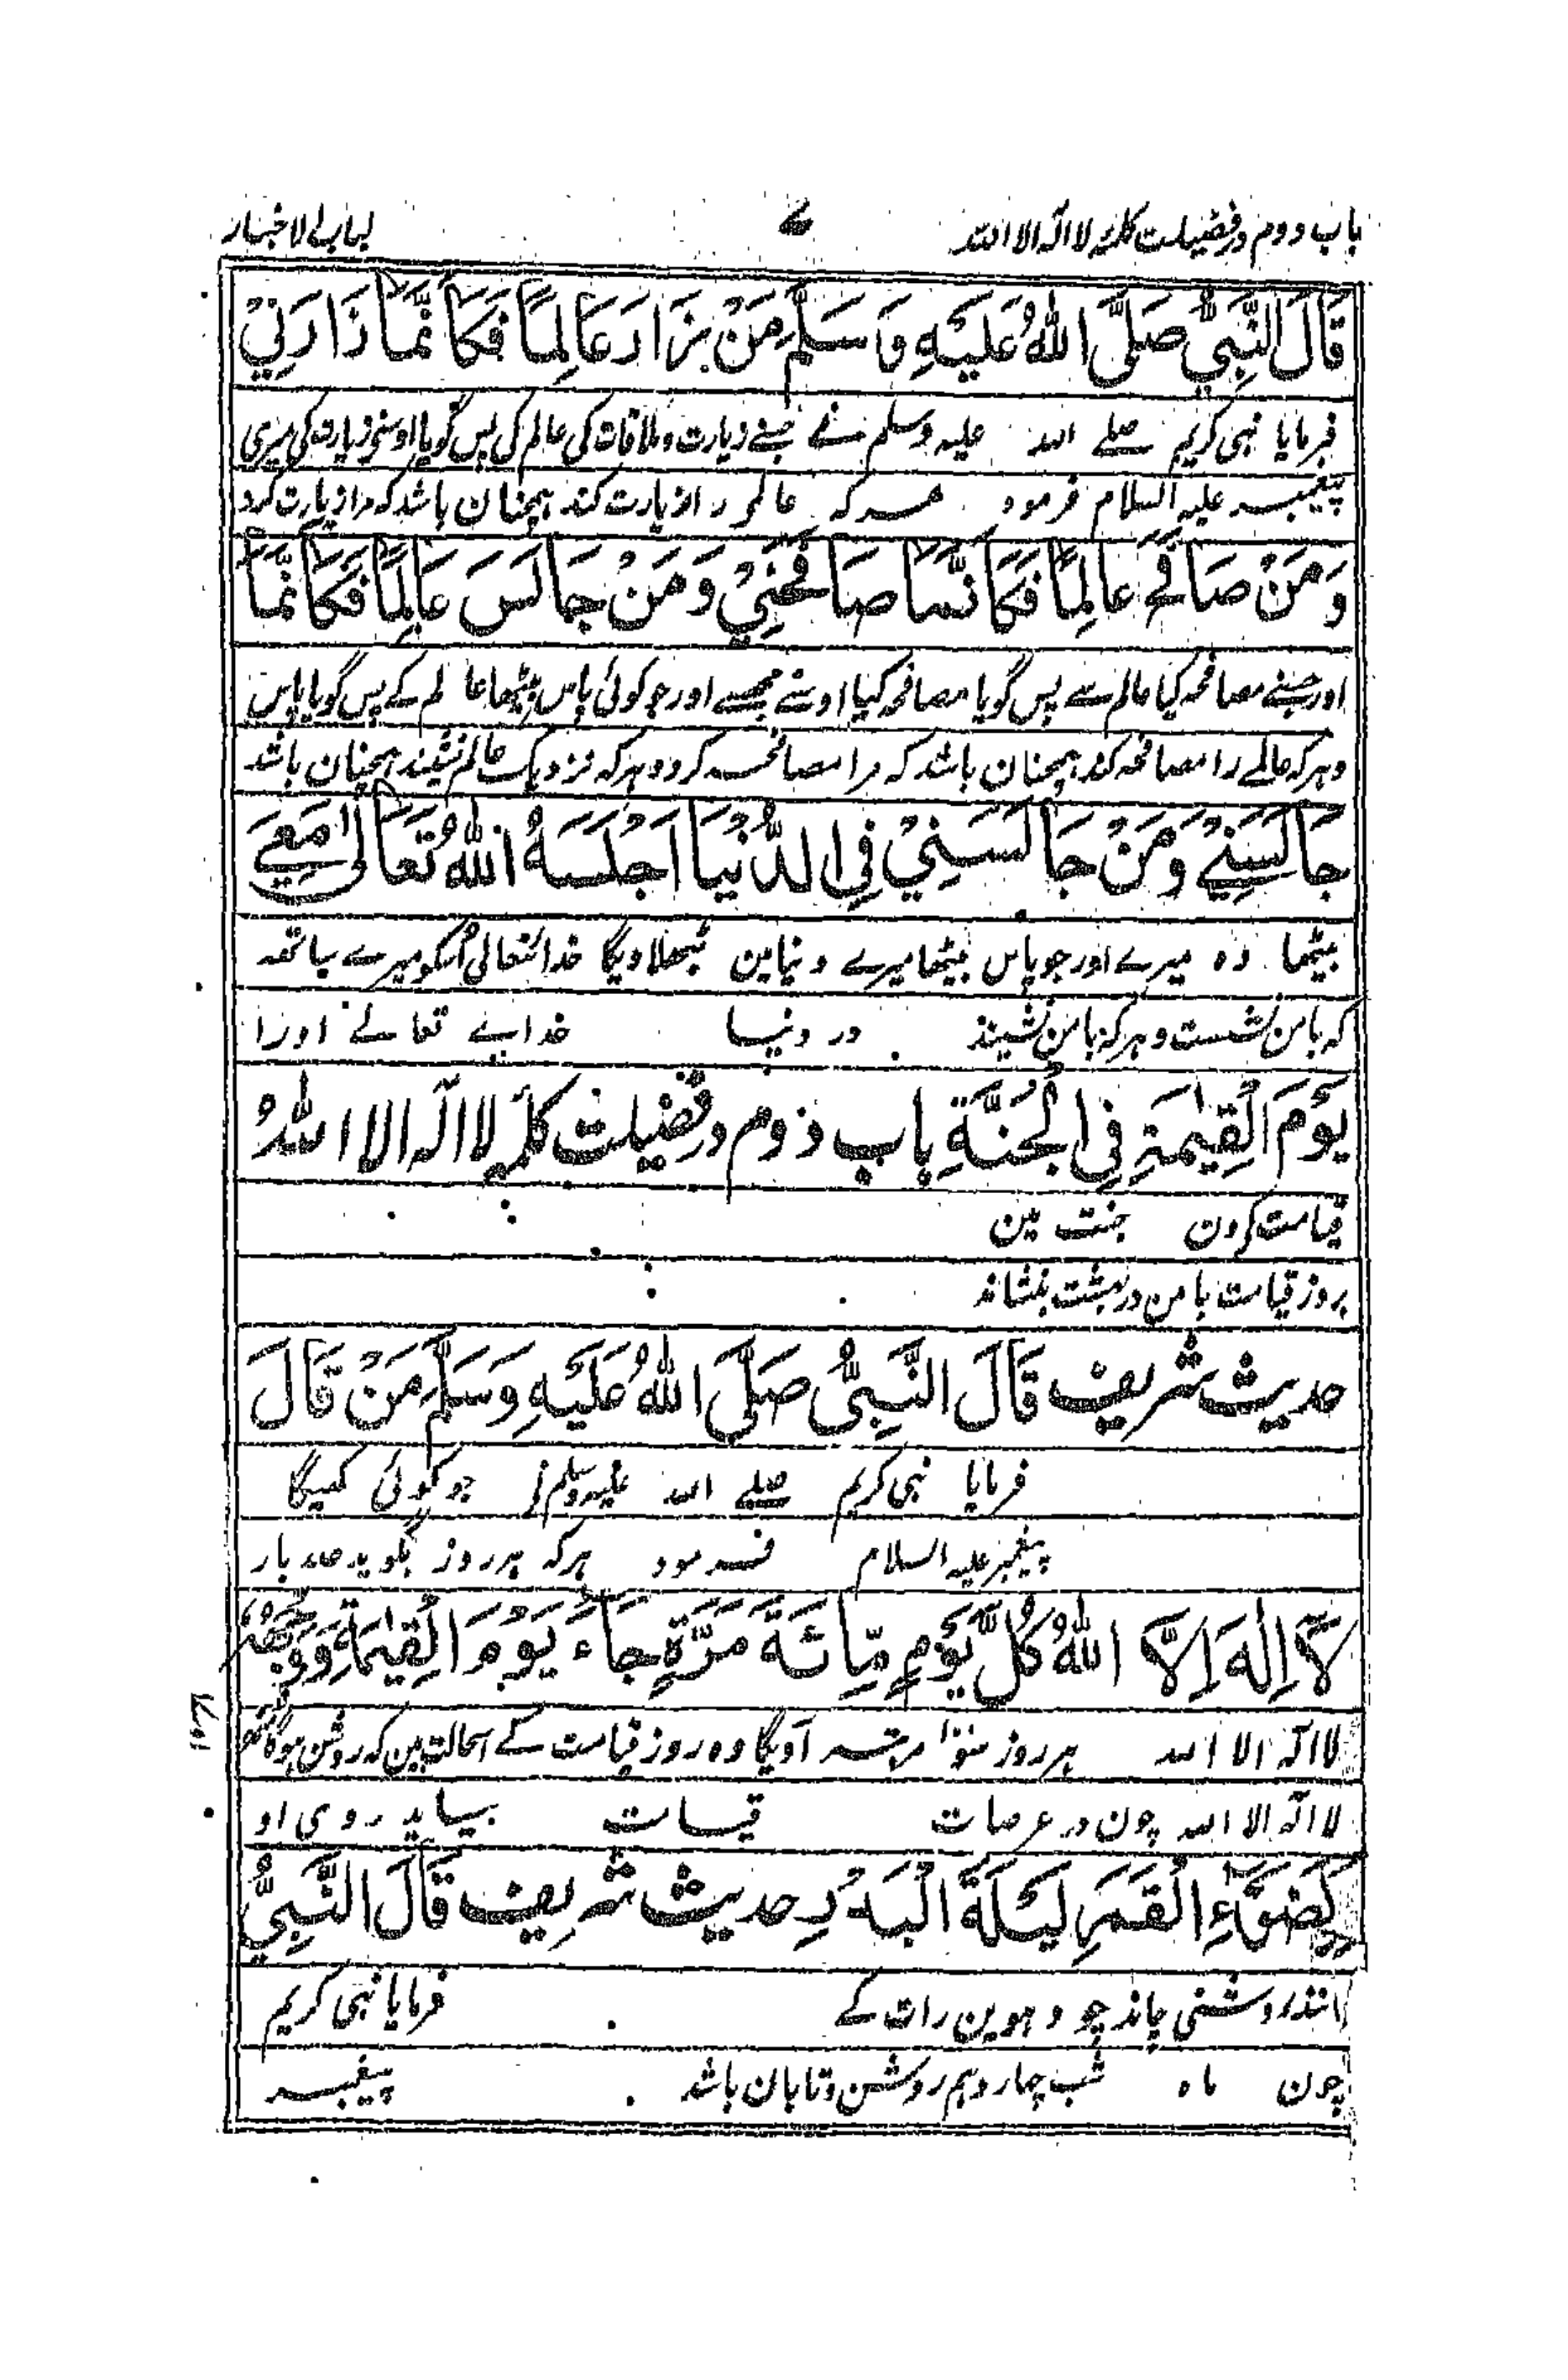 باب دوم در فضیلت کلمہ لا الہ الا اللہ ے لباب الاخبار
قَالَ النَّبِیُّ صَلَّی اللهُ عَلَیْهِ وَسَلَّمَ مَنْ زَارَ عَالِمًا فَكَاَنَّمَا زَارَنِیْ
فرمایا نبی کریم صلے اللہ علیہ وسلم نے جسنے زیارت و ملاقات کی عالم کی پس گویا اوسنی زیارت کی میری
پیغمبر علیہ السلام فرمود ہر کہ عالم را زیارت کند ہمچنان باشد کہ مرا زیارت کرد
وَمَنْ صَافَحَ عَالِمًا فَكَاَنَّمَا صَافَحَنِیْ وَمَنْ جَالَسَ عَالِمًا فَكَاَنَّمَا
اور جسنے مصافحہ کیا عالم سے پس گویا مصافحہ کیا اوسنے مجھسے اور جو کوئی پاس بیٹھا عالم کے پس گویا پاس
و ہر کہ عالمے را مصافحہ کند ہمچنان باشد کہ مرا مصافحہ کرد و ہر کہ نزدیک عالم نشیند ہمچنان باشد
جَالَسَنِیْ وَمَنْ جَالَسَنِیْ فِی الدُّنْیَا اَجْلَسَهُ اللهُ تَعَالٰی مَعِیَ
بیٹھا وہ میرے اور جو پاس بیٹھا میرے دنیا مین بٹھلا ویگا خدا تعالی اُسکو میرے ساتھہ
کہ با من نشست و ہر کہ با من نشیند در دنیا خداے تعالے اورا
یَوْمَ الْقِیٰمَةِ فِی الْجَنَّةِ باب دوم در فضیلت کلمہ لا الہ الا اللهُ
قیامت کے دن جنت مین
بروز قیامت با من در بہشت بنشاند
حدیث شریف قَالَ النَّبِیُّ صَلَّی اللهُ عَلَیْهِ وَسَلَّمَ مَنْ قَالَ
فرمایا نبی کریم صلے اللہ علیہ وسلم نی جو کوئی کہیگا
پیغمبر علیہ السلام فرمود ہر کہ ہر روز بگوید صد بار
لَا اِلٰهَ اِلَّا اللهُ كُلَّ یَوْمٍ مِّائَةَ مَرَّةٍ جَاءَ یَوْمَ الْقِیٰمَةِ وَوَجْهُهُ
لا الہ الا اللہ ہر روز سو مرتبہ آویگا وہ روز قیامت کے اسحالت مین کہ روشن ہوگا
لا الہ الا اللہ چون در عرصات قیامت بیاید روی او
كَضَوْءِ الْقَمَرِ لَیْلَةَ الْبَدْرِ حدیث شریف قَالَ النَّبِیُّ
مانند روشنی چاند چودھوین رات کے فرمایا نبی کریم
چون ماہ شب چہاردہم روشن و تابان باشد پیغمبر